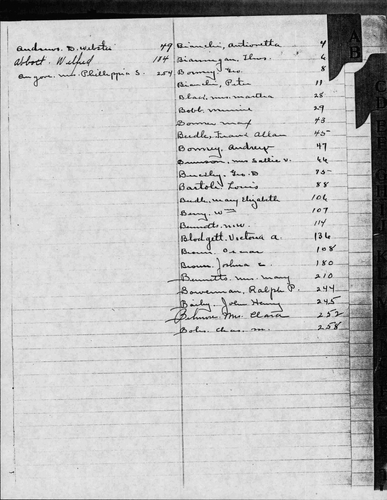 Andrews. D. Webster 49
Abbott. Wilfred 184
Angove. Mrs. Phillippia S. 254
Bianchi, Antioretta 4
Brannigan, Thos. 6
Bonney, Geo. 8
Bianchi, Peter 11
Black, Mrs. Martha 25
Bobb. Minnie 29
Bonner Max 43
Beedle, Frank Allan 45
Bonney, Andrew 47
Mrs Sallie V. 66
Geo. D 85
Bartoli Louis 88
Beedle, Mary Elizabeth 106
Berry. Wm 107
Bennetts. N.W. 114
Blodgett, Victoria A. 136
Brown. 108
Brown. Joshua E. 180
Bennetts. Mrs. Mary 210
Bowerman, Ralph P. 244
Baily. John Henry 245
Mrs. Clara 252
Bohn. Chas. M. 258
AB